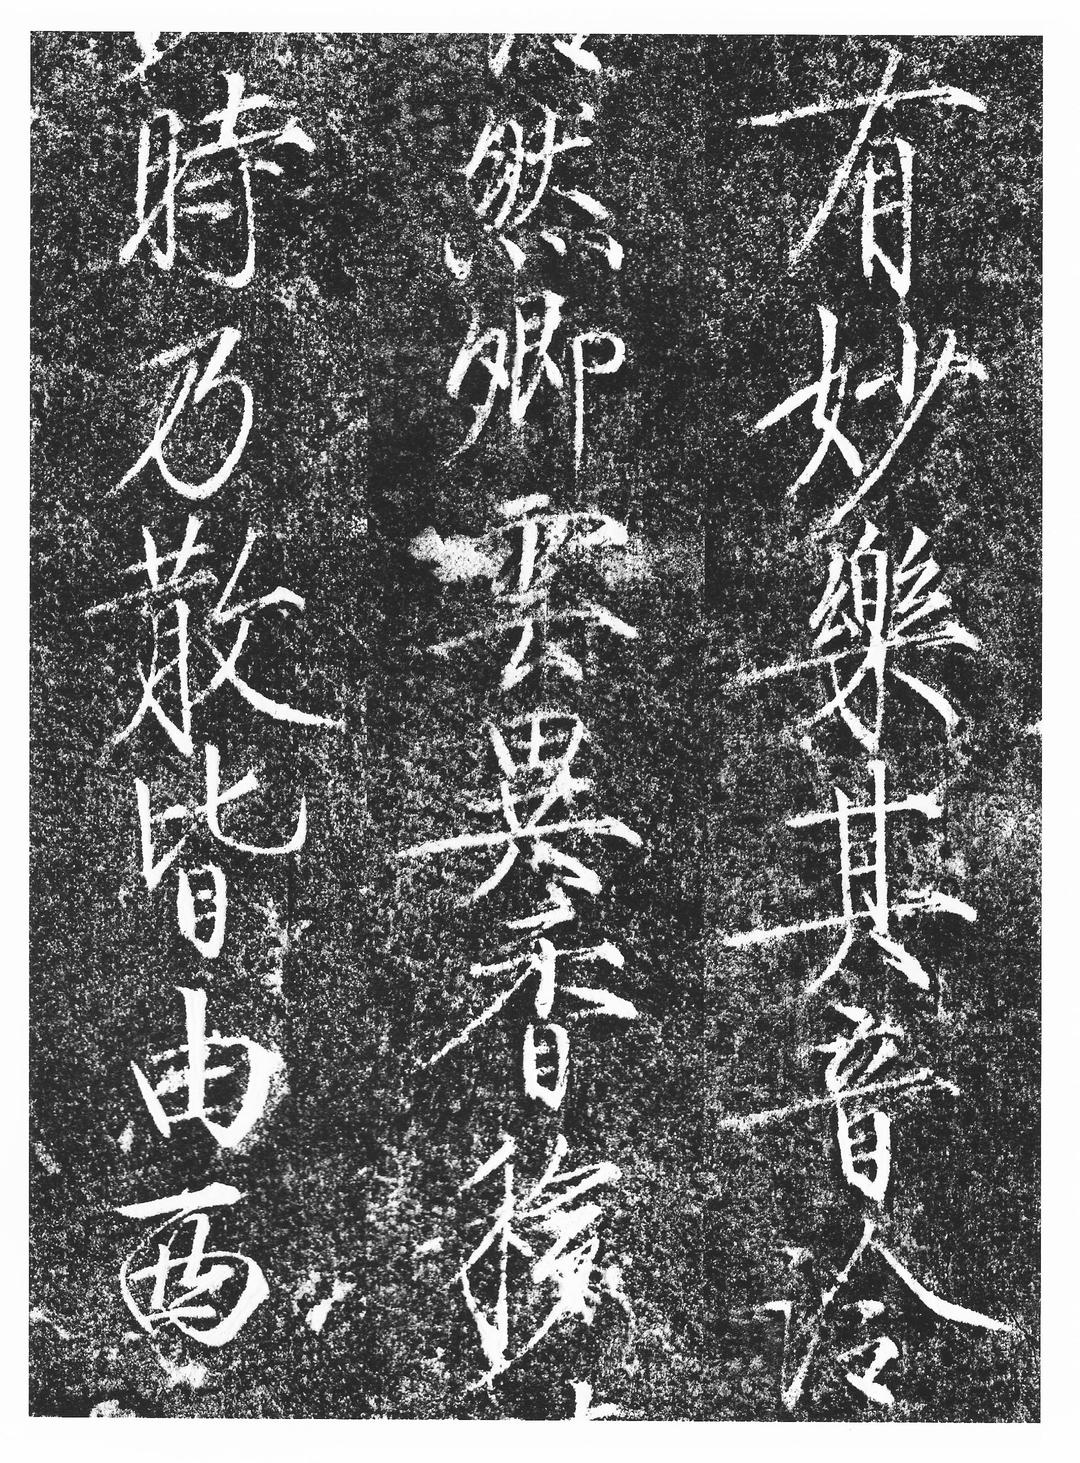 有妙樂其音泠
然卿雲異香移
時乃散皆由西